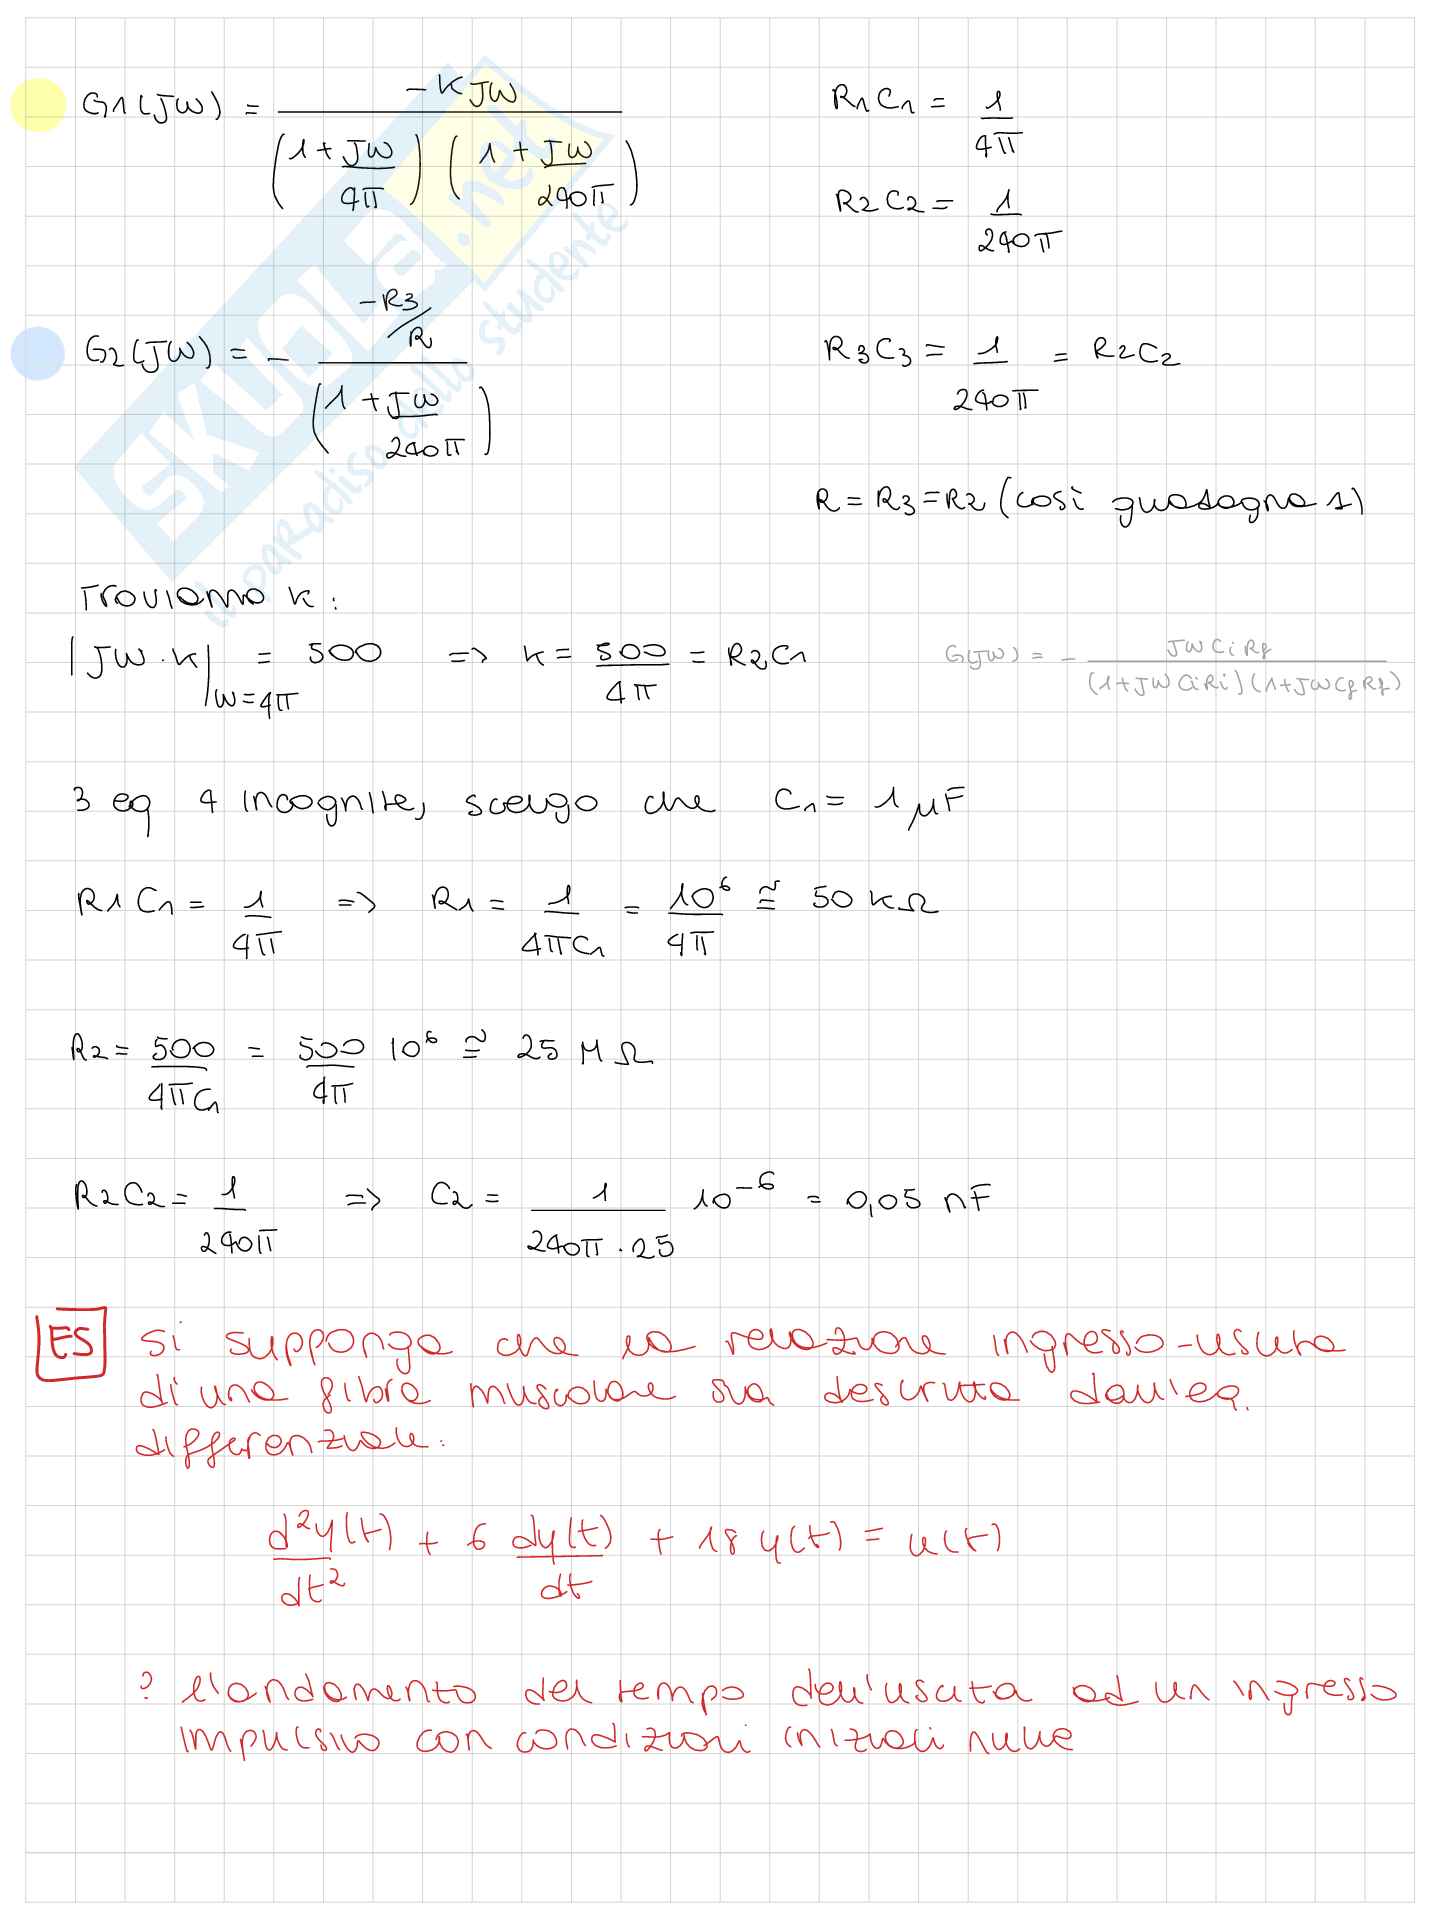 G1(JW) = -K JW / (1 + JW/4π) (1 + JW/240π)
R1C1 = 1/4π
R2C2 = 1/240π
G2(JW) = - -R3/R / (1 + JW/240π)
R3C3 = 1/240π = R2C2
R = R3 = R2 (così guadagno 1)
Troviamo K:
|JW·K| W=4π = 500 => K = 500/4π = R2C1
G(JW) = - JWCiRf / (1+JWCiRi)(1+JWCfRf)
3 eq 4 incognite, scelgo che C1 = 1 μF
R1C1 = 1/4π => R1 = 1/4πC1 = 10⁶/4π ≅ 50 KΩ
R2 = 500/4πC1 = 500/4π 10⁶ ≅ 25 MΩ
R2C2 = 1/240π => C2 = 1/240π·25 10⁻⁶ = 0,05 nF
ES Si supponga che la relazione ingresso-uscita
di una fibra muscolare sia descritta dall'eq.
differenziale:
d²y(t)/dt² + 6 dy(t)/dt + 18 y(t) = u(t)
? l'andamento del tempo dell'uscita ad un ingresso
impulsivo con condizioni iniziali nulle
SKUOLA.net
il paradiso dello studente